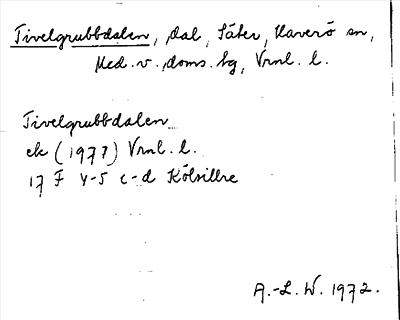 Tivelgrubbdalen, dal, Säter, Haverö sn,
Med. v. doms. hg, Vrnl. l.
Tivelgrubbdalen
ek (1977) Vrnl. l.
17 F 4-5 c-d Kölsillre
A.-L. W. 1972.